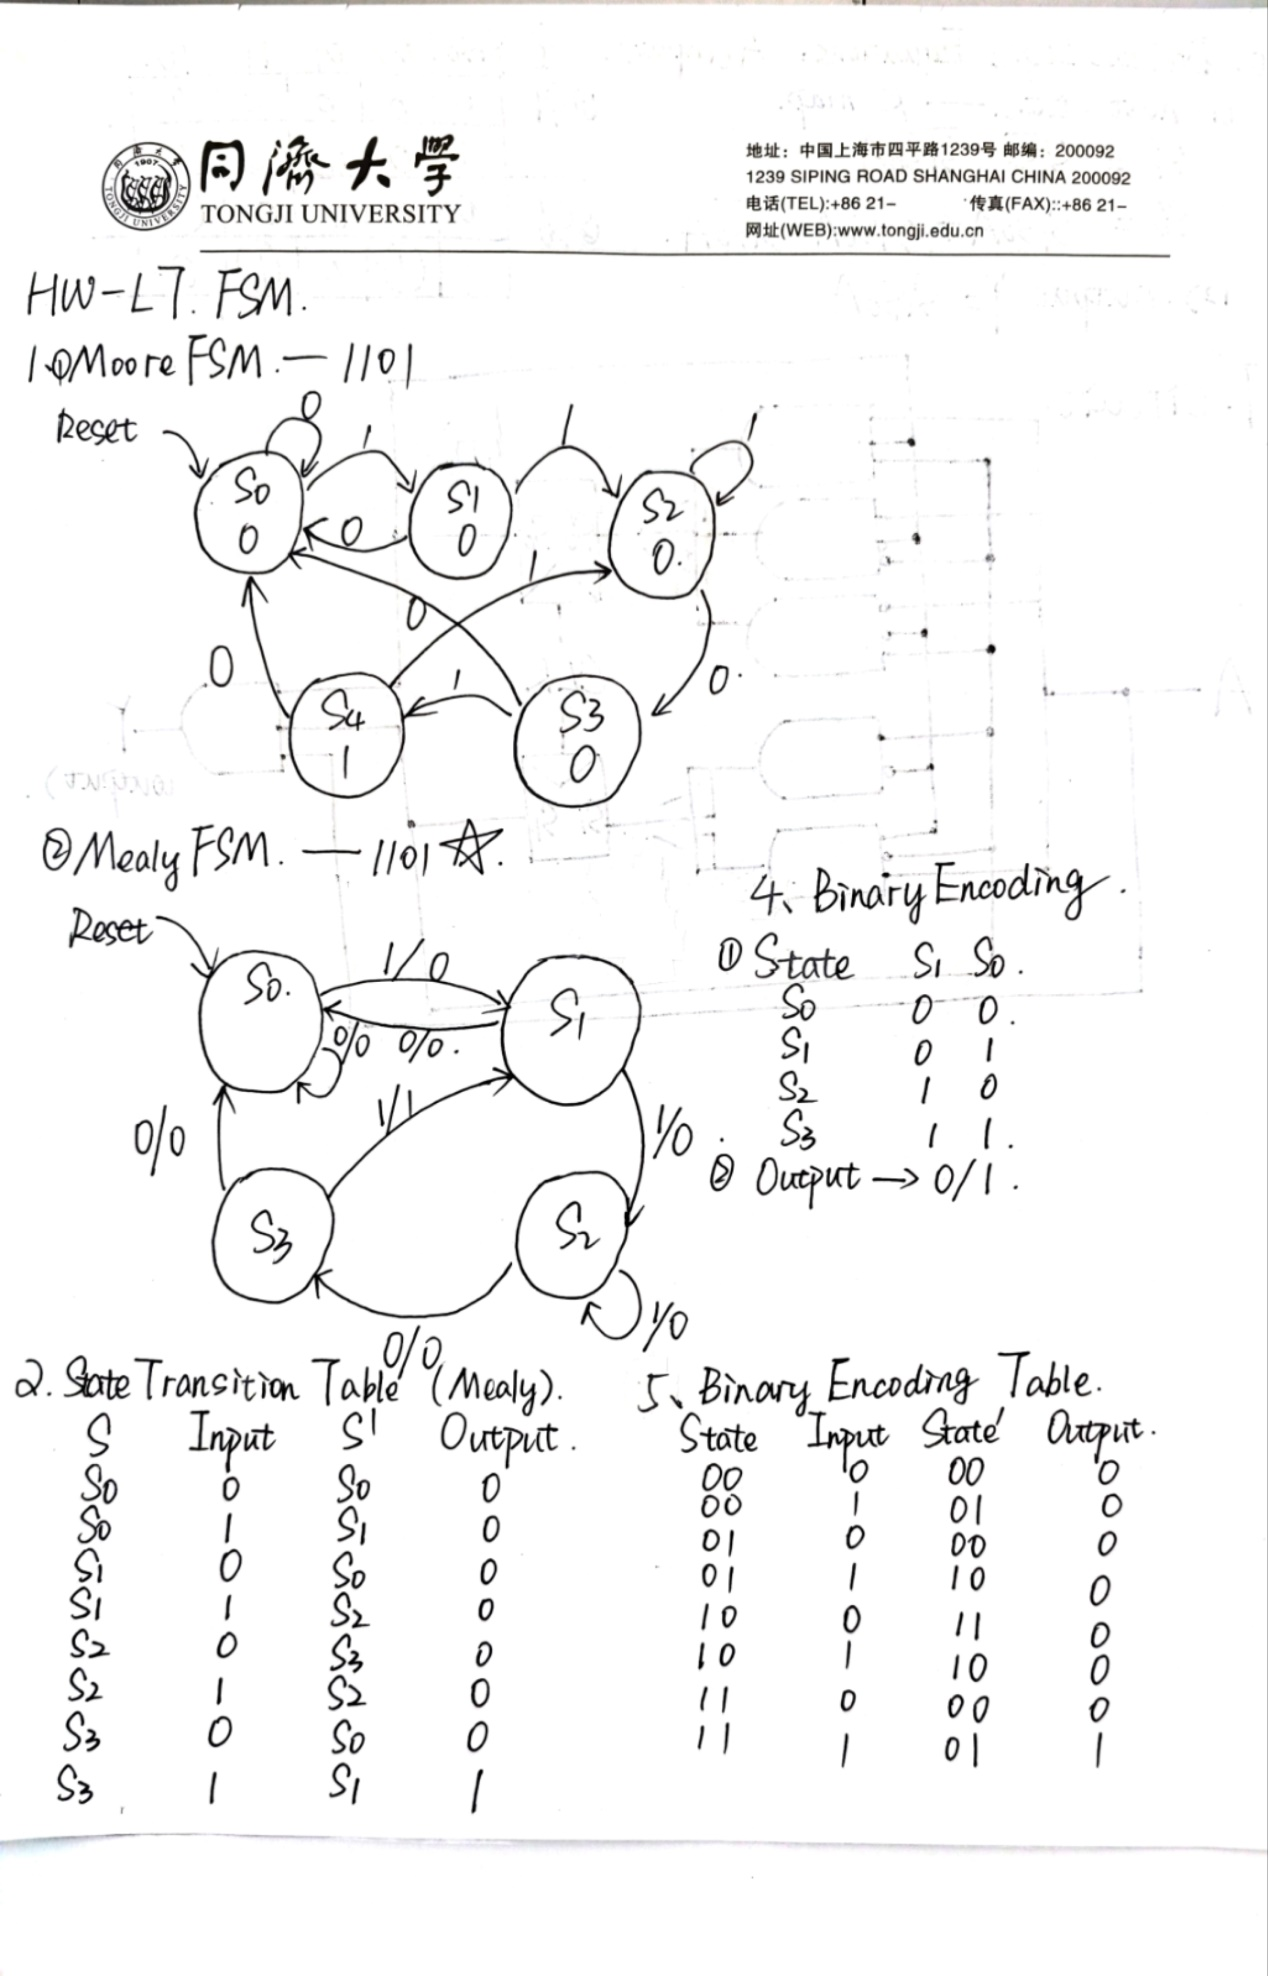 同濟大學
TONGJI UNIVERSITY
地址：中国上海市四平路1239号 邮编：200092
1239 SIPING ROAD SHANGHAI CHINA 200092
电话(TEL):+86 21- 传真(FAX)::+86 21-
网址(WEB):www.tongji.edu.cn
HW-L7. FSM.
1.①Moore FSM. — 1101
Reset
0
1
1
1
S0
0
S1
0
S2
0.
0
1
0
0
0.
1
S4
1
S3
0
②Mealy FSM. — 1101 ☆.
Reset
S0.
1/0
S1
0/0
0/0.
1/1
0/0
1/0
S3
S2
1/0
0/0
4、Binary Encoding.
① State S1 S0.
S0 0 0.
S1 0 1
S2 1 0
S3 1 1.
② Output → 0/1.
2. State Transition Table (Mealy).
S Input S' Output.
S0 0 S0 0
S0 1 S1 0
S1 0 S0 0
S1 1 S2 0
S2 0 S3 0
S2 1 S2 0
S3 0 S0 0
S3 1 S1 1
5、Binary Encoding Table.
State Input State' Output.
00 0 00 0
00 1 01 0
01 0 00 0
01 1 10 0
10 0 11 0
10 1 10 0
11 0 00 0
11 1 01 1